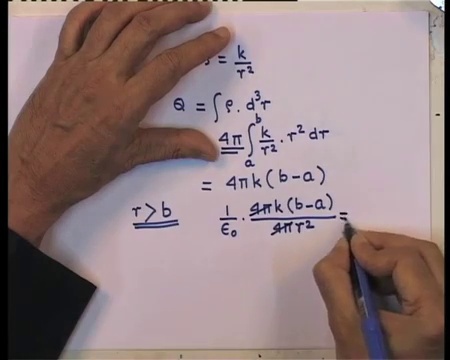 = k/r²
Q = ∫ρ. d³r
4π ∫ₐᵇ k/r² · r² dr
= 4πk(b-a)
r>b 1/ε₀ · 4πk(b-a)/4πr² =